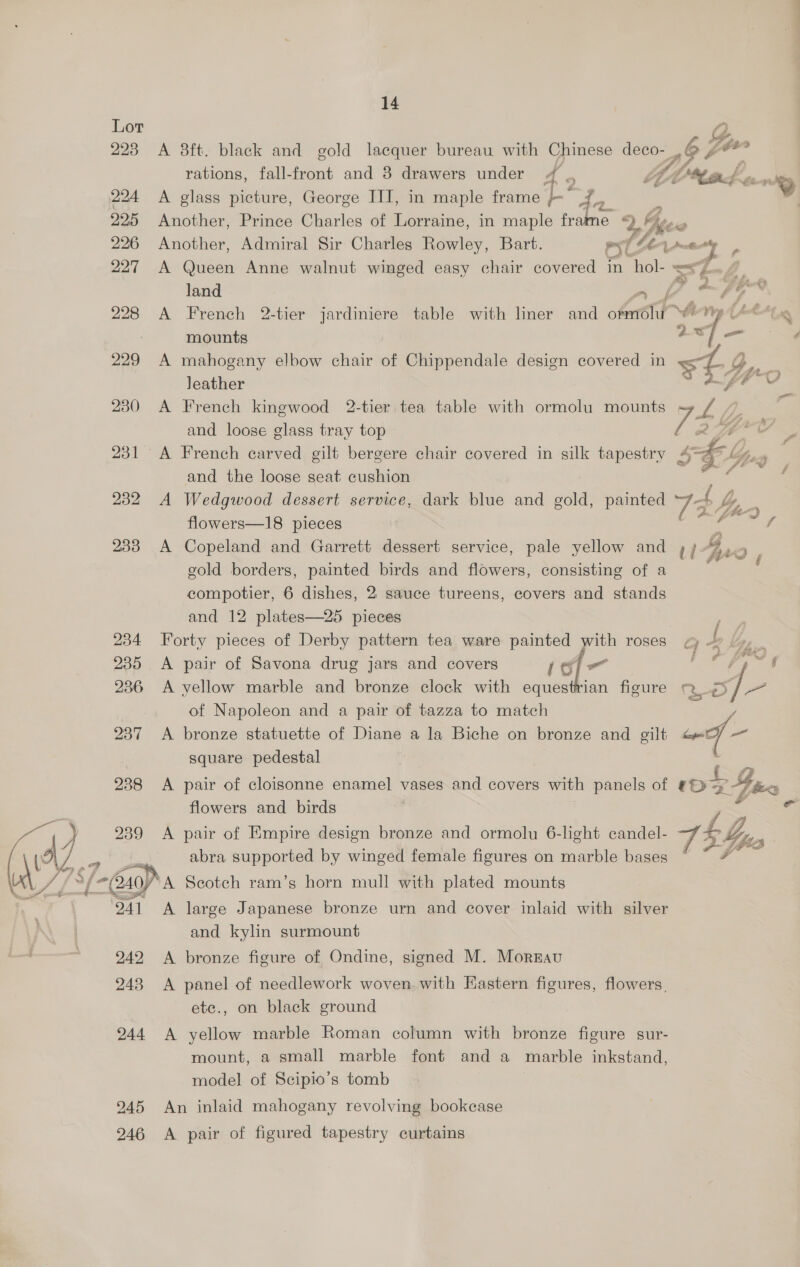 14
Lot
223 A 3ft. black and gold lacquer bureau with Chinese deco-
rations, fall-front and 3 drawers under
224 A glass picture, George III, in maple frame
225 Another, Prince Charles of Lorraine, in maple frame
226 Another, Admiral Sir Charles Rowley, Bart.
227 A Queen Anne walnut winged easy chair covered in hol-
land
228 A French 2-tier jardiniere table with liner and ormolu
mounts
229 A mahogany elbow chair of Chippendale design covered in
leather
230 A French kingwood 2-tier tea table with ormolu mounts
and loose glass tray top
231 A French carved gilt bergere chair covered in silk tapestry
and the loose seat cushion
232 A Wedgwood dessert service, dark blue and gold, painted
flowers—18 pieces
233 A Copeland and Garrett dessert service, pale yellow and
gold borders, painted birds and flowers, consisting of a
compotier, 6 dishes, 2 sauce tureens, covers and stands
and 12 plates—25 pieces
234 Forty pieces of Derby pattern tea ware painted with roses
235 A pair of Savona drug jars and covers
236 A yellow marble and bronze clock with equestrian figure
of Napoleon and a pair of tazza to match
237 A bronze statuette of Diane a la Biche on bronze and gilt
square pedestal
238 A pair of cloisonne enamel vases and covers with panels of
flowers and birds
239 A pair of Empire design bronze and ormolu 6-light candel-
abra supported by winged female figures on marble bases
240 A Scotch ram's horn mull with plated mounts
241 A large Japanese bronze urn and cover inlaid with silver
and kylin surmount
242 A bronze figure of Ondine, signed M. MOREAU
243 A panel of needlework woven with Eastern figures, flowers,
etc., on black ground
244 A yellow marble Roman column with bronze figure sur-
mount, a small marble font and a marble inkstand,
model of Scipio's tomb
245 An inlaid mahogany revolving bookcase
246 A pair of figured tapestry curtains